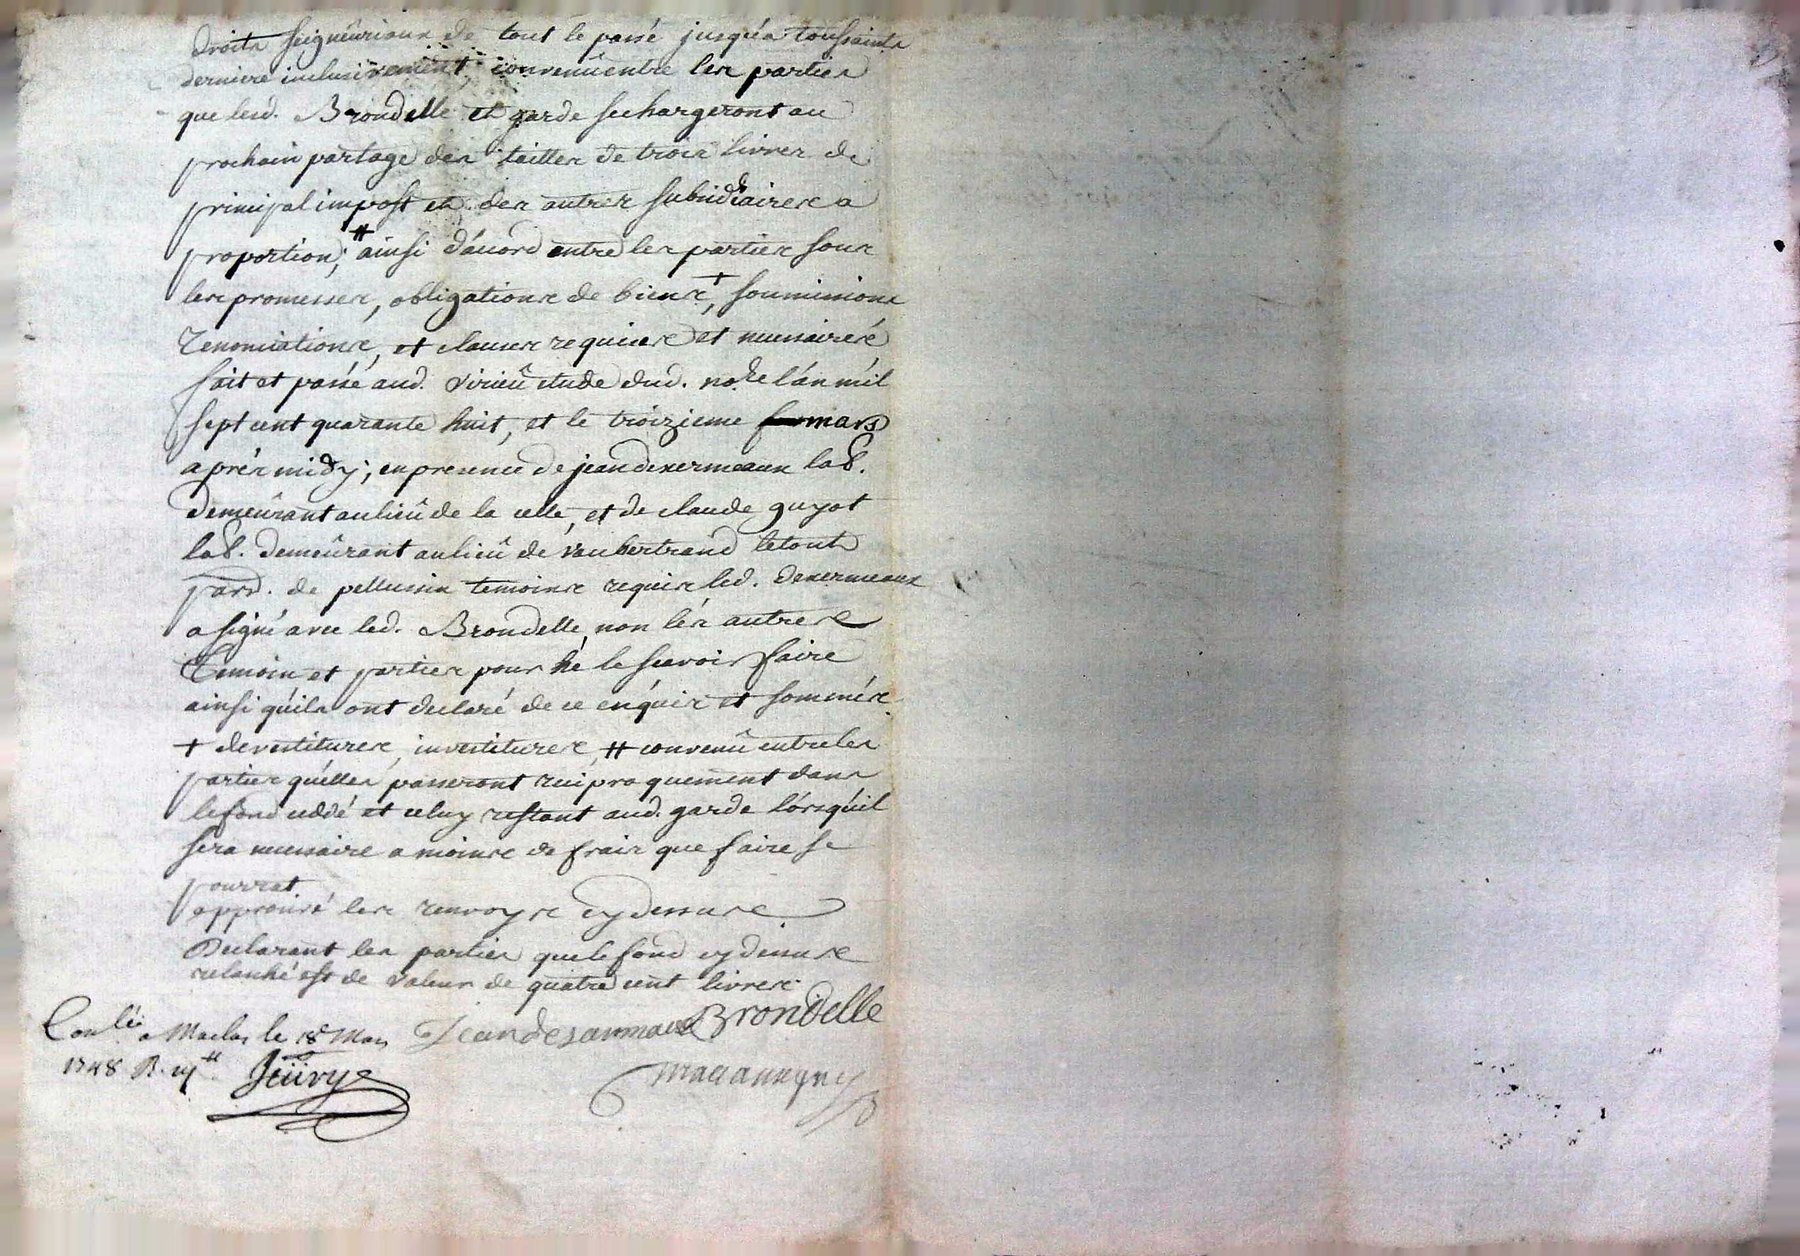 droits seigneuriaux de tout le passé jusqu'a toussaints
derniere inclusivement, convenû entre les parties
que lesd. Brondelle et garde se chargeront au
prochain partage des tailles de trois livres de
principal impost et des autres subsidiaires a
proportion; # ainsi d'acord entre les parties sous
les promesses, obligations de biens +, soumissions
renonciations, et clauses requises et necessaires
fait et passé aud. virieû etude dud. no.re l'an mil
sept cent quarante huit, et le troizieme mars
aprés midy; en presence de jean dexermeaux lab.
demeûrant au lieû de la celle, et de claude guyot
lab. demeûrant au lieû de vaubertrand le tout
par. de pellussin temoins requis led. dexermeaux
a signé avec led. Brondelle, non lés autres
temoin et parties pour né le scavoir faire
ainsi qu'ils ont declaré de ce enquis et sommés
+ devestitures, investitures, # convenû entre les
parties qu'elles passeront reciproquement dans
le fond ceddé et celuy restant aud. garde lorsqu'il
sera necessaire a moins de frais que faire se
pourrat.
approuvé les renvoys cy dessus
Declarant les parties que le fond cy dessus
relaché est de valeur de quatre cent livres.
Con.lé a Maclas le 18e Mars Jean desarmaux Brondelle
1748 R.